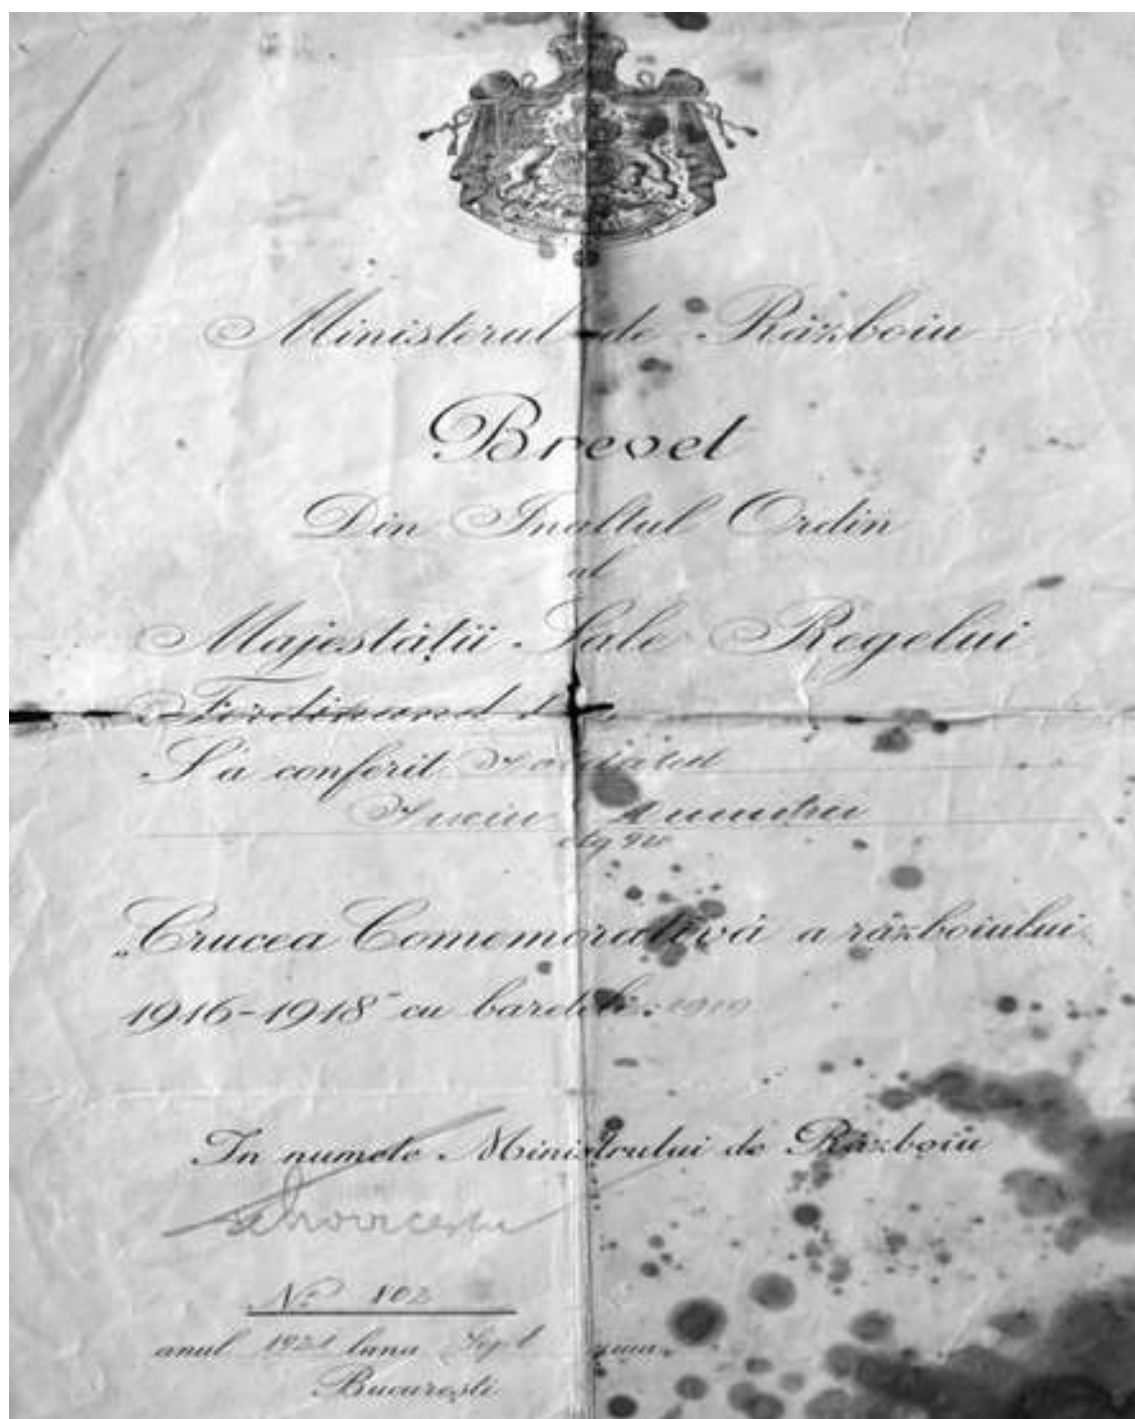 Ministerul de Războiu
Brevet
Din Inaltul Ordin
al
Majestăţii Sale Regelui
Ferdinand I
S'a conferit
Dumitru
„Crucea Comemorativă a războiului
1916-1918" cu baretele: 1919
In numele Ministrului de Războiu
No 102
anul 1921 luna Sept ziua
Bucureşti